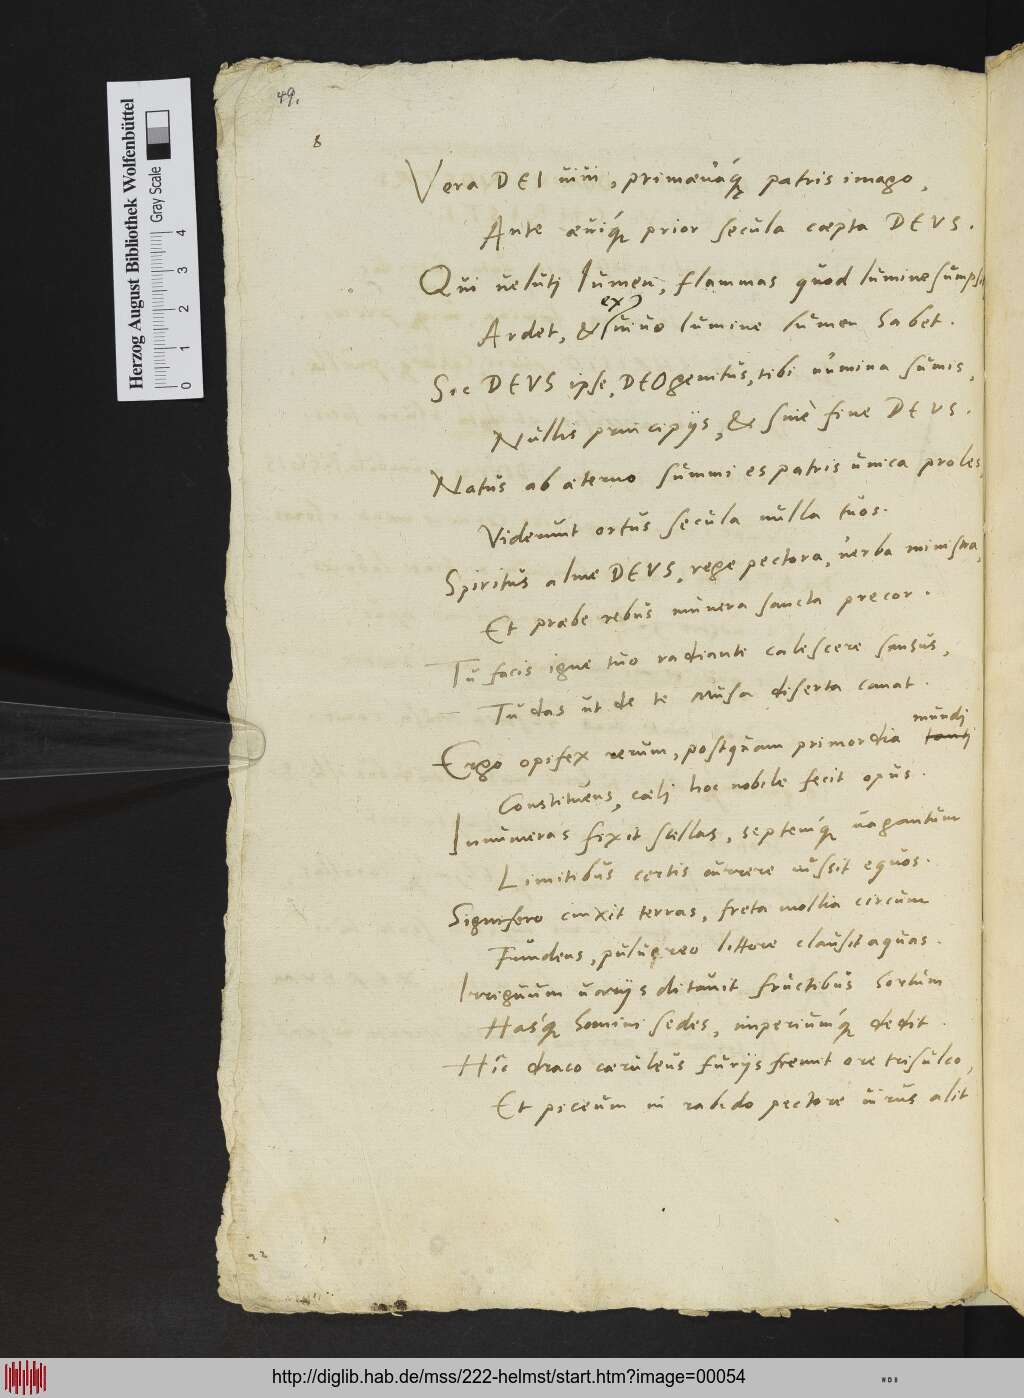 49.
8
Vera DEI uiui, primæuáq́ue patris imago,
Ante æuiq́ue prior secula cœpta DEVS.
Qui ueluti lumen, flammas quod lumine sumpsit
ex
Ardet, & uiuo lumine lumen habet.
Sic DEVS ipse, DEO genitus, tibi numina sumis,
Nullis principijs, & sine fine DEVS.
Natus ab æterno summi es patris unica proles,
Viderunt ortus secula nulla tuos.
Spiritus alme DEVS, rege pectora, uerba ministra,
Et præbe rebus munera sancta precor.
Tu facis igne tuo radiante calescere sensus,
Tu das ut de te Musa diserta canat.
mundi
Ergo opifex rerum, postquam primordia tanti
Constituens, cœli hoc nobile fecit opus.
Innumeras fixit stellas, septemq́ue uagantum
Limitibus certis currere iussit equos.
Signifero cinxit terras, freta mollia circum
Fundens, puluereo littore clausit aquas.
Irriguum uarijs ditauit fructibus hortum
Hasq́ue homini sedes, imperiumq́ue dedit.
Hîc draco cæruleus furijs fremit ore trisulco,
Et piceum in rabido pectore uirus alit
22
Herzog August Bibliothek Wolfenbüttel
Gray Scale
0 1 2 3 4
http://diglib.hab.de/mss/222-helmst/start.htm?image=00054
WDB